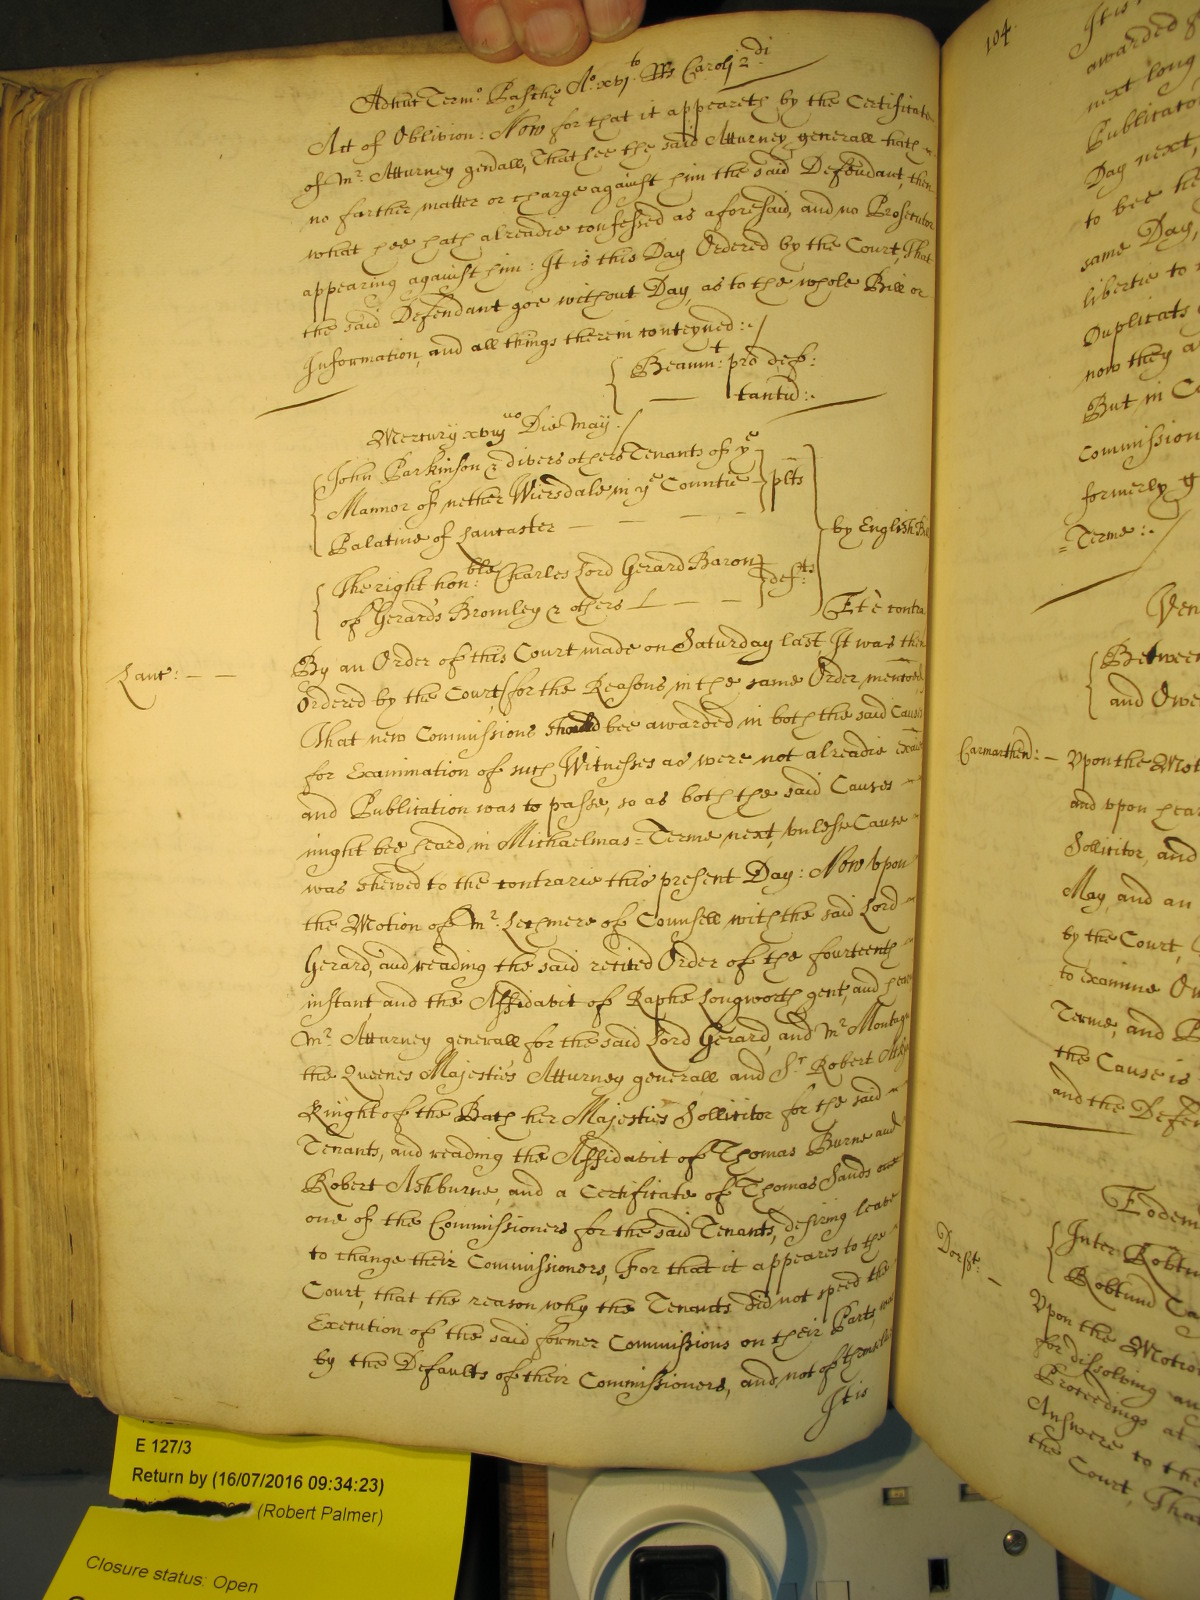 Adhuc Termo Pasche Ao xvjto Rs Caroli 2di
Act of Oblivion: Now for that it appeareth by the Certificate
of Mr. Atturney genrall, That hee the said Atturney generall hath
no farther matter or charge against him the said Defendant, then
what hee hath alreadie confessed as aforesaid, and no Prosecutor
appearing against him: It is this Day Ordered by the Court, That
the said Defendant goe without Day, as to the whole Bill or
Information, and all things therein conteyned:./
Beaumt: pro def:
tantu:.
Mercurij xviijuo Die May./
John Parkinson & divers others Tenants of ye
Mannor of nether Wiersdale in ye Countie
Palatine of Lancaster
plts
by English Bill
The right honble: Charles Lord Gerard Baron
of Gerards Bromley & others
defts
Et è contra
Lanc:
By an Order of this Court made on Saturday last, It was then
Ordered by the Court, (for the Reasons in the same Order menconed)
That new Commissions should bee awarded in both the said Causes
for Examination of such Witnesses as were not alreadie
and Publication was to passe, so as both the said Causes
might bee heard in Michaelmas=Terme next, unlesse Cause
was shewed to the contrarie this present Day: Now Vpon
the Motion of Mr. Lechmere of Counsell with the said Lord
Gerard, and reading the said recited Order of the fourteenth
instant and the Affidavit of Raphe Longworth gent, and
Mr. Atturney generall for the said Lord Gerard, and Mr Montagu
the Queenes Majesties Atturney generall and Sr Robert
Knight of the Bath her Majesties Sollicitor for the said
Tenants, and reading the Affidavit of Thomas Burne and
Robert Ashburne, and a Certificate of Thomas Sands
one of the Commissioners for the said Tenants, desiring leave
to change their Commissioners, For that it appeares to the
Court, that the reason why the Tenants did not speed the
Execution of the said former Commissions on their Parts, was
by the Defaults of their Commissioners, and not of themselves
It is
104.
It is
awarded
next long
Publicatio
Day next,
to bee he
same Day,
libertie to
Duplicats
now they a
But in Co
Commission
formerly g
=Terme:./
Ven
Between
and Owe
Carmarthen:
Vpon the Mot
and vpon hear
Sollicitor, and
May, and an
by the Court,
to examine Ow
Terme, and P
the Cause is
and the Defen
Eodem
Dorst:
Inter Robtu
Robtum Ca
Vpon the Motion
for dissolving an
Proceedings at
Answere to the
the Court, That
E 127/3
Return by (16/07/2016 09:34:23)
(Robert Palmer)
Closure status: Open